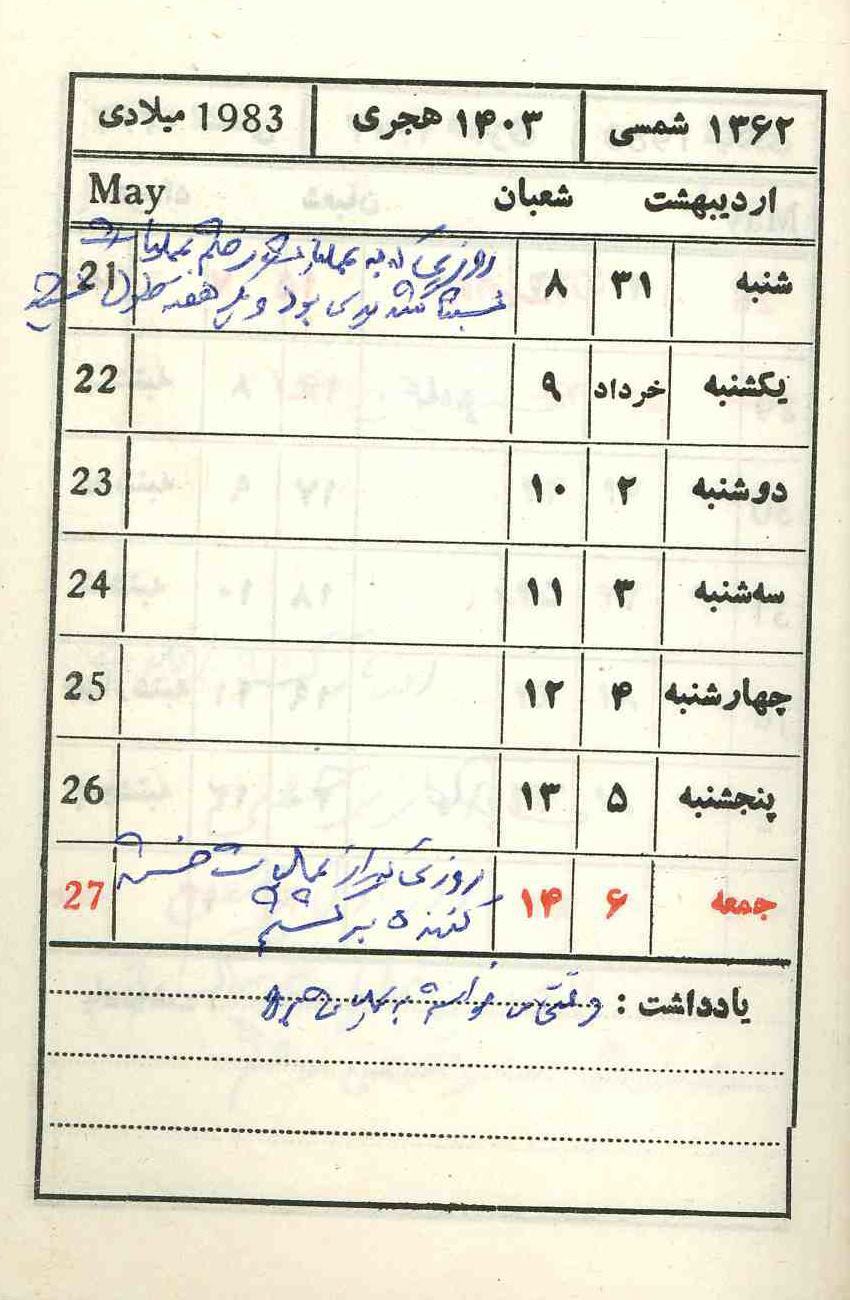 ۱۳۶۲ شمسی ۱۴۰۳ هجری 1983 میلادی
اردیبهشت شعبان May
شنبه ۳۱ ۸ روزی که به عملیات رفتم عملیات 21
نسبتا بود و یک هفته طول
یکشنبه خرداد ۹ 22
دوشنبه ۲ ۱۰ 23
سه‌شنبه ۳ ۱۱ 24
چهارشنبه ۴ ۱۲ 25
پنجشنبه ۵ ۱۳ 26
جمعه ۶ ۱۴ روزی که از عملیات خسته 27
کننده برگشتم
یادداشت : وقتی